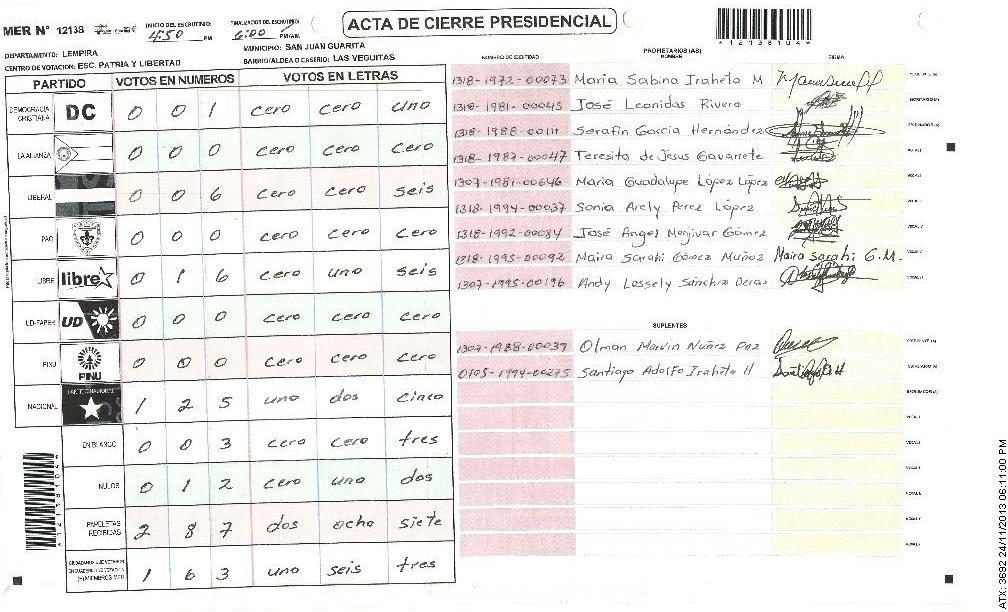 ACTA DE CIERRE PRESIDENCIAL
MER N° 12138
INICIO DEL ESCRUTINIO: 4:50 PM
FINALIZACION DEL ESCRUTINIO: 6:00 PM/AM.
*12138104*
DEPARTAMENTO: LEMPIRA
MUNICIPIO: SAN JUAN GUARITA
CENTRO DE VOTACION: ESC. PATRIA Y LIBERTAD
BARRIO/ALDEA O CASERIO: LAS VEGUITAS
PARTIDO VOTOS EN NUMEROS VOTOS EN LETRAS
DEMOCRACIA CRISTIANA DC 0 0 1 cero cero uno
LA ALIANZA 0 0 0 cero cero cero
LIBERAL 0 0 6 cero cero seis
PAC 0 0 0 cero cero cero
LIBRE libre 0 1 6 cero uno seis
UD-FAPER UD 0 0 0 cero cero cero
PINU PINU 0 0 0 cero cero cero
NACIONAL 1 2 5 uno dos cinco
EN BLANCO 0 0 3 cero cero tres
NULOS 0 1 2 cero uno dos
PAPELETAS RECIBIDAS 2 8 7 dos ocho siete
CIUDADANOS QUE VOTARON EN CUADERNO DE VOTACION (+) MIEMBROS MER 1 6 3 uno seis tres
PROPIETARIOS (AS)
NUMERO DE IDENTIDAD NOMBRE FIRMA
1318-1972-00073 Maria Sabina Iraheta M
1318-1981-00045 José Leonidas Rivero
1318-1988-00111 Serafin Garcia Hernández
1318-1987-00047 Teresita de Jesus Gavarrete
1307-1981-00646 Maria Guadalupe López López
1318-1994-00037 Sonia Arely Perez López
1318-1992-00084 José Angel Menjivar Gómez
1318-1995-00092 Maira Sarahi Gómez Muñoz Maira Sarahi G.M.
1307-1995-00196 Andy Lossely Sánchez Deras
SUPLENTES
1307-1988-00039 Olman Marvin Nuñez Paz
0105-1994-00275 Santiago Adolfo Iraheta H
*12138104*
ATX: 3692 24/11/2013 06:11:00 PM